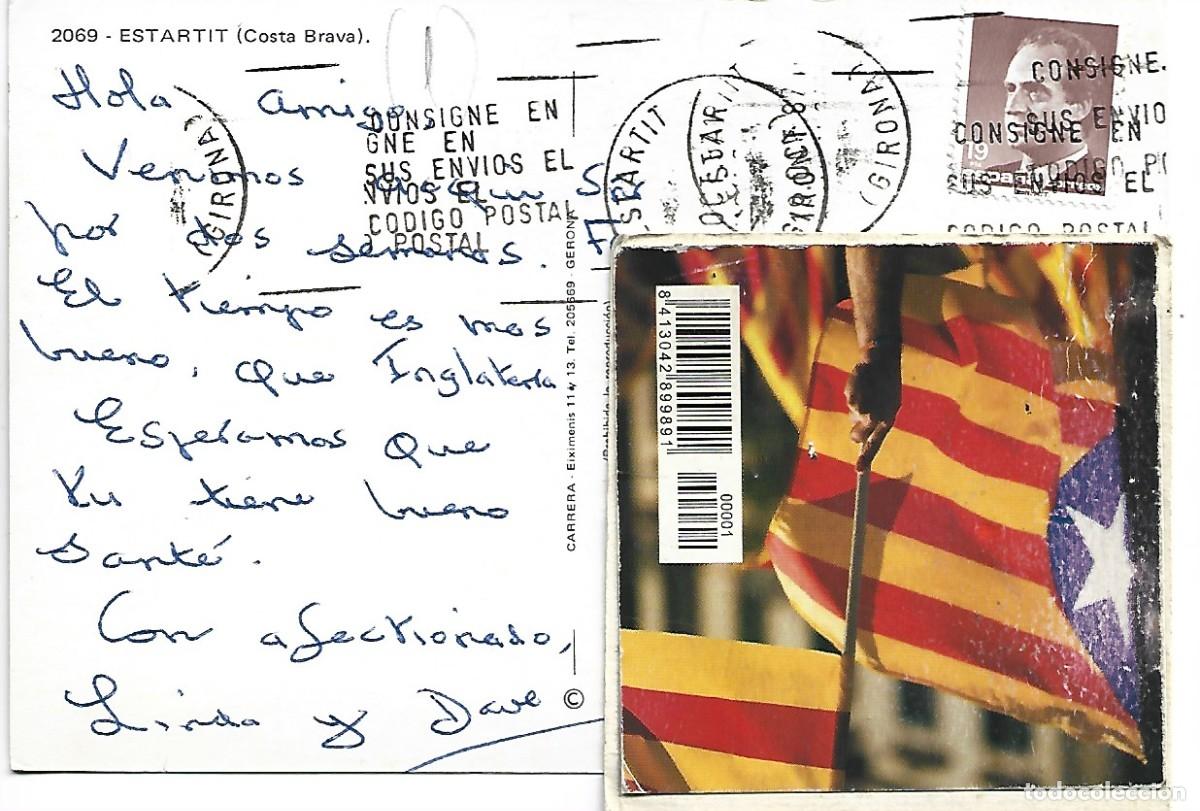 2069 - ESTARTIT (Costa Brava).
Hola amigo,
Venimos aqui
por dos semanas.
El tiempo es mas
bueno, que Inglateria
Esperamos que
tu tiene bueno
santé.
Con afectionado,
Linda y Dave
CONSIGNE EN
GNE EN
SUS ENVIOS EL
NVIOS EL
CODIGO POSTAL
O POSTAL
(GIRONA)
(GIRONA)
CONSIGNE
SUS ENVIO
CONSIGNE EN
SUS ENVIOS EL
CODIGO POSTAL
19
CARRERA - Eiximenis 11 y 13. Tel. 205669 - GERONA
(Prohibida la reproducción)
©
8 413042 899891
00001
todocoleccion